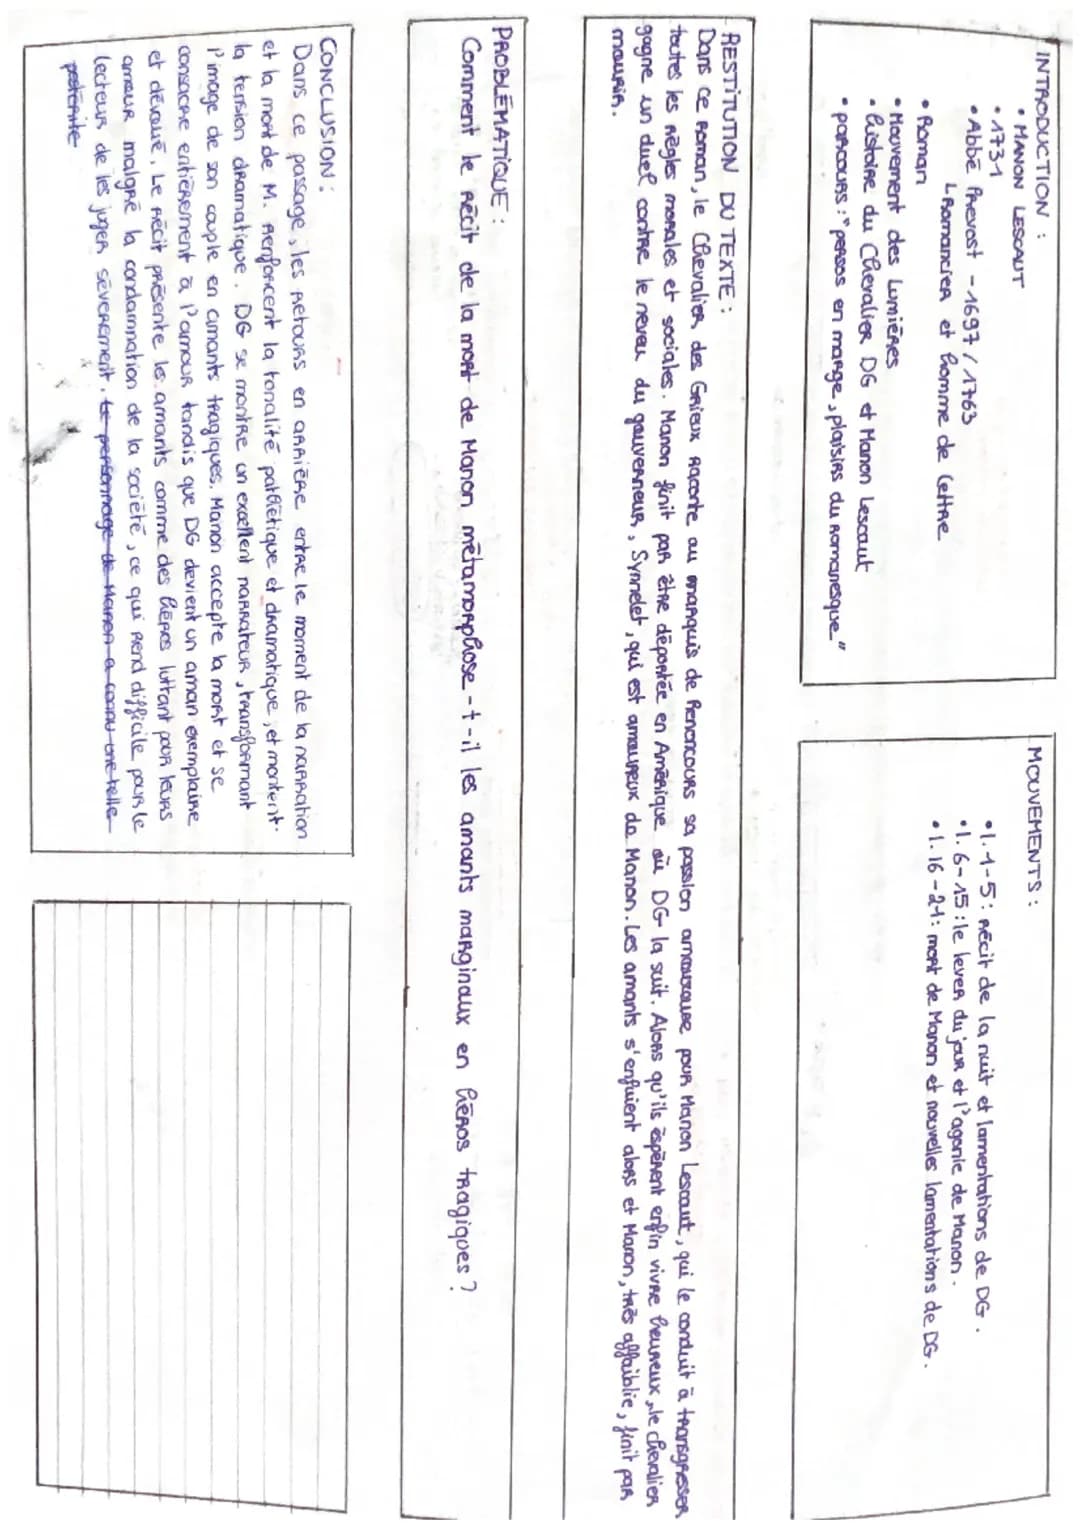 INTRODUCTION :
• MANON LESCAUT
• 1731
• Abbé Prevost - 1697 / 1763
↳ Romancier et homme de lettre
• Roman
• Mouvement des Lumières
• histoire du Chevalier DG et Manon Lescaut
• parcours : "persos en marge, plaisirs du romanesque"
MOUVEMENTS :
• l. 1-5 : récit de la nuit et lamentations de DG.
• l. 6-15 : le lever du jour et l'agonie de Manon.
• l. 16-21 : mort de Manon et nouvelles lamentations de DG.
RESTITUTION DU TEXTE :
Dans ce roman, le Chevalier des Grieux raconte au marquis de Renoncours sa passion amoureuse pour Manon Lescaut, qui le conduit à transgresser
toutes les règles morales et sociales. Manon finit par être déportée en Amérique où DG la suit. Alors qu'ils éspèrent enfin vivre heureux, le chevalier
gagne un duel contre le neveu du gouverneur, Synnelet, qui est amoureux de Manon. Les amants s'enfuient alors et Manon, très affaiblie, finit par
mourir.
PROBLÉMATIQUE :
Comment le récit de la mort de Manon métamorphose-t-il les amants marginaux en héros tragiques ?
CONCLUSION :
Dans ce passage, les retours en arrière entre le moment de la narration
et la mort de M. renforcent la tonalité pathétique et dramatique, et montent
la tension dramatique. DG se montre un excellent narrateur, transformant
l'image de son couple en amants tragiques. Manon accepte la mort et se
consacre entièrement à l'amour tandis que DG devient un aman exemplaire
et dévoué. Le récit présente les amants comme des héros luttant pour leurs
amour malgré la condamnation de la société, ce qui rend difficile pour le
lecteurs de les juger sévèrement. Le personnage de Manon a connu une telle
postérité